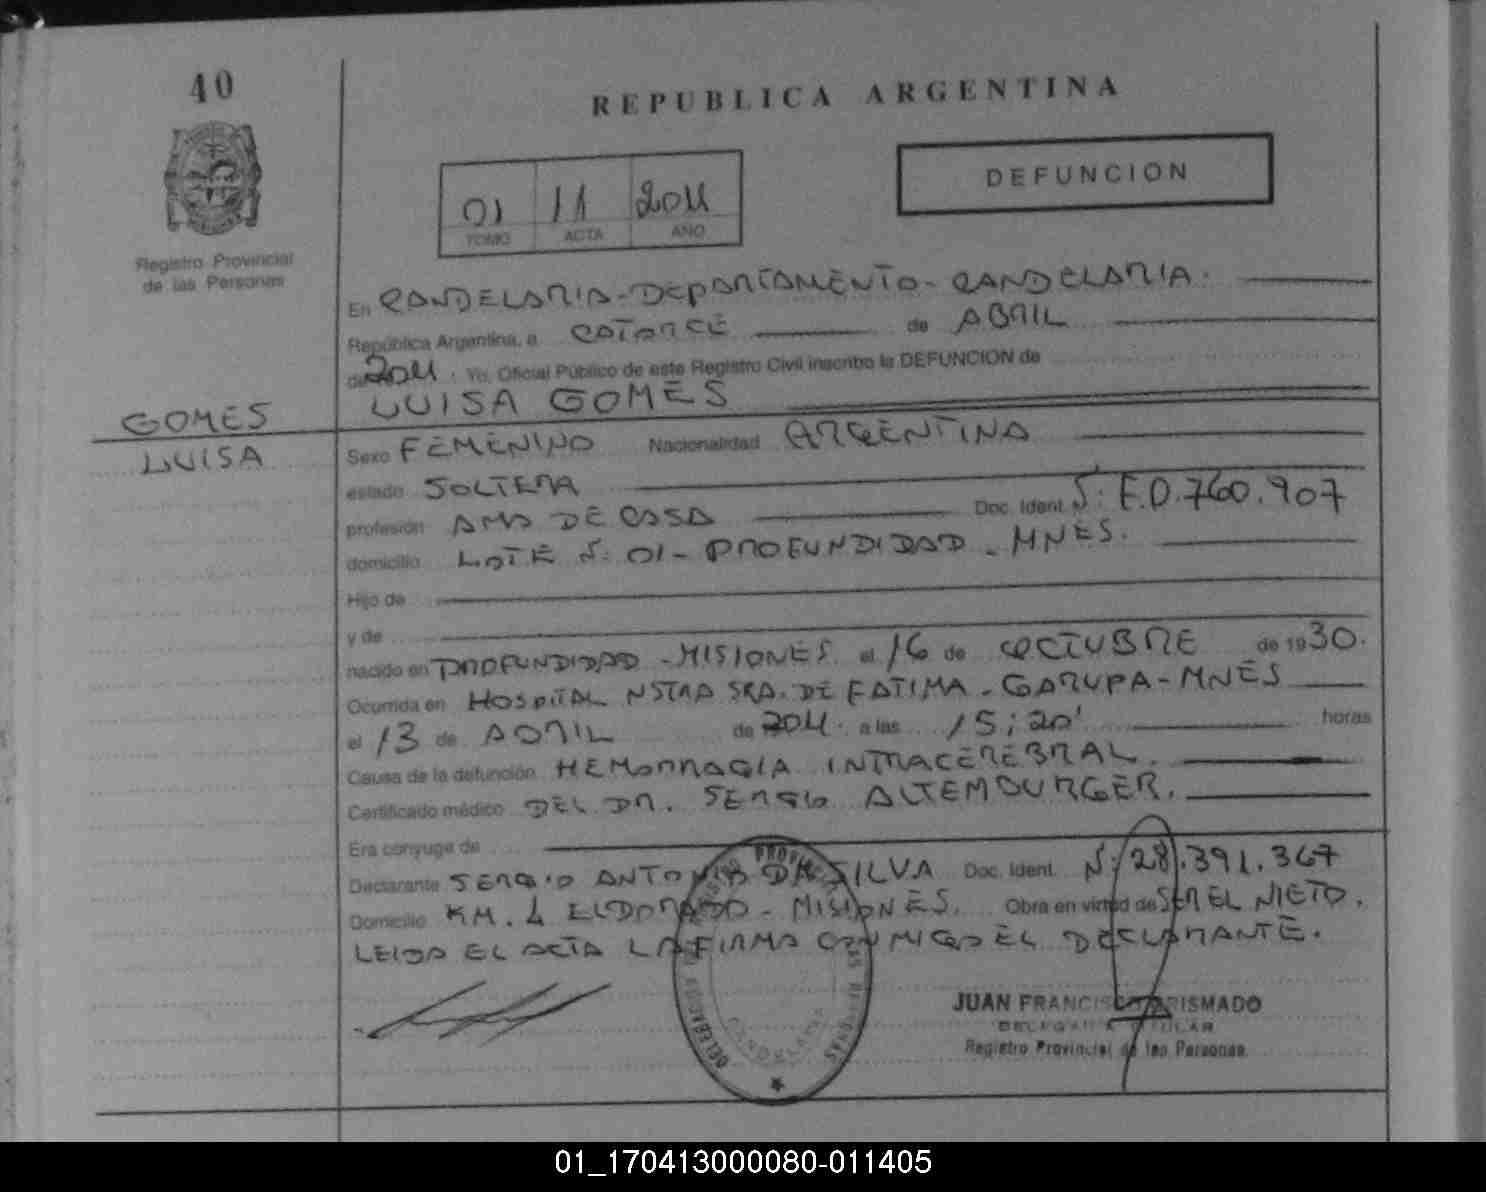 40
REPUBLICA ARGENTINA
DEFUNCION
01 11 2011
TOMO ACTA AÑO
Registro Provincial
de las Personas
En CANDELARIA-DEPARTAMENTO-CANDELARIA.
República Argentina, a CATORCE de ABRIL
de 2011. Yo, Oficial Público de este Registro Civil inscribo la DEFUNCION de
LUISA GOMES
GOMES
LUISA
Sexo FEMENINO Nacionalidad ARGENTINA
estado SOLTERA
profesión AMA DE CASA Doc. Ident. N: F.0.760.907
domicilio LOTE N: 01 - PROFUNDIDAD - MNES.
Hijo de
y de
nacido en PROFUNDIDAD - MISIONES el 16 de OCTUBRE de 1930.
Ocurrida en HOSPITAL NSTRA SRA. DE FATIMA - GARUPA - MNES
el 13 de ABRIL de 2011. a las 15:20' horas
Causa de la defunción HEMORRAGIA INTRACEREBRAL.
Certificado médico DEL DR. SERGIO ALTEMBURGER.
Era conyuge de
Declarante SERGIO ANTONIO DA SILVA Doc. Ident. N: 28.391.367
Domicilio KM. 4 ELDORADO - MISIONES. Obra en virtud de SER EL NIETO.
LEIDA EL ACTA LA FIRMA CONMIGO EL DECLARANTE.
JUAN FRANCISCO ARISMADO
DELEGADO TITULAR
Registro Provincial de las Personas
01_170413000080-011405